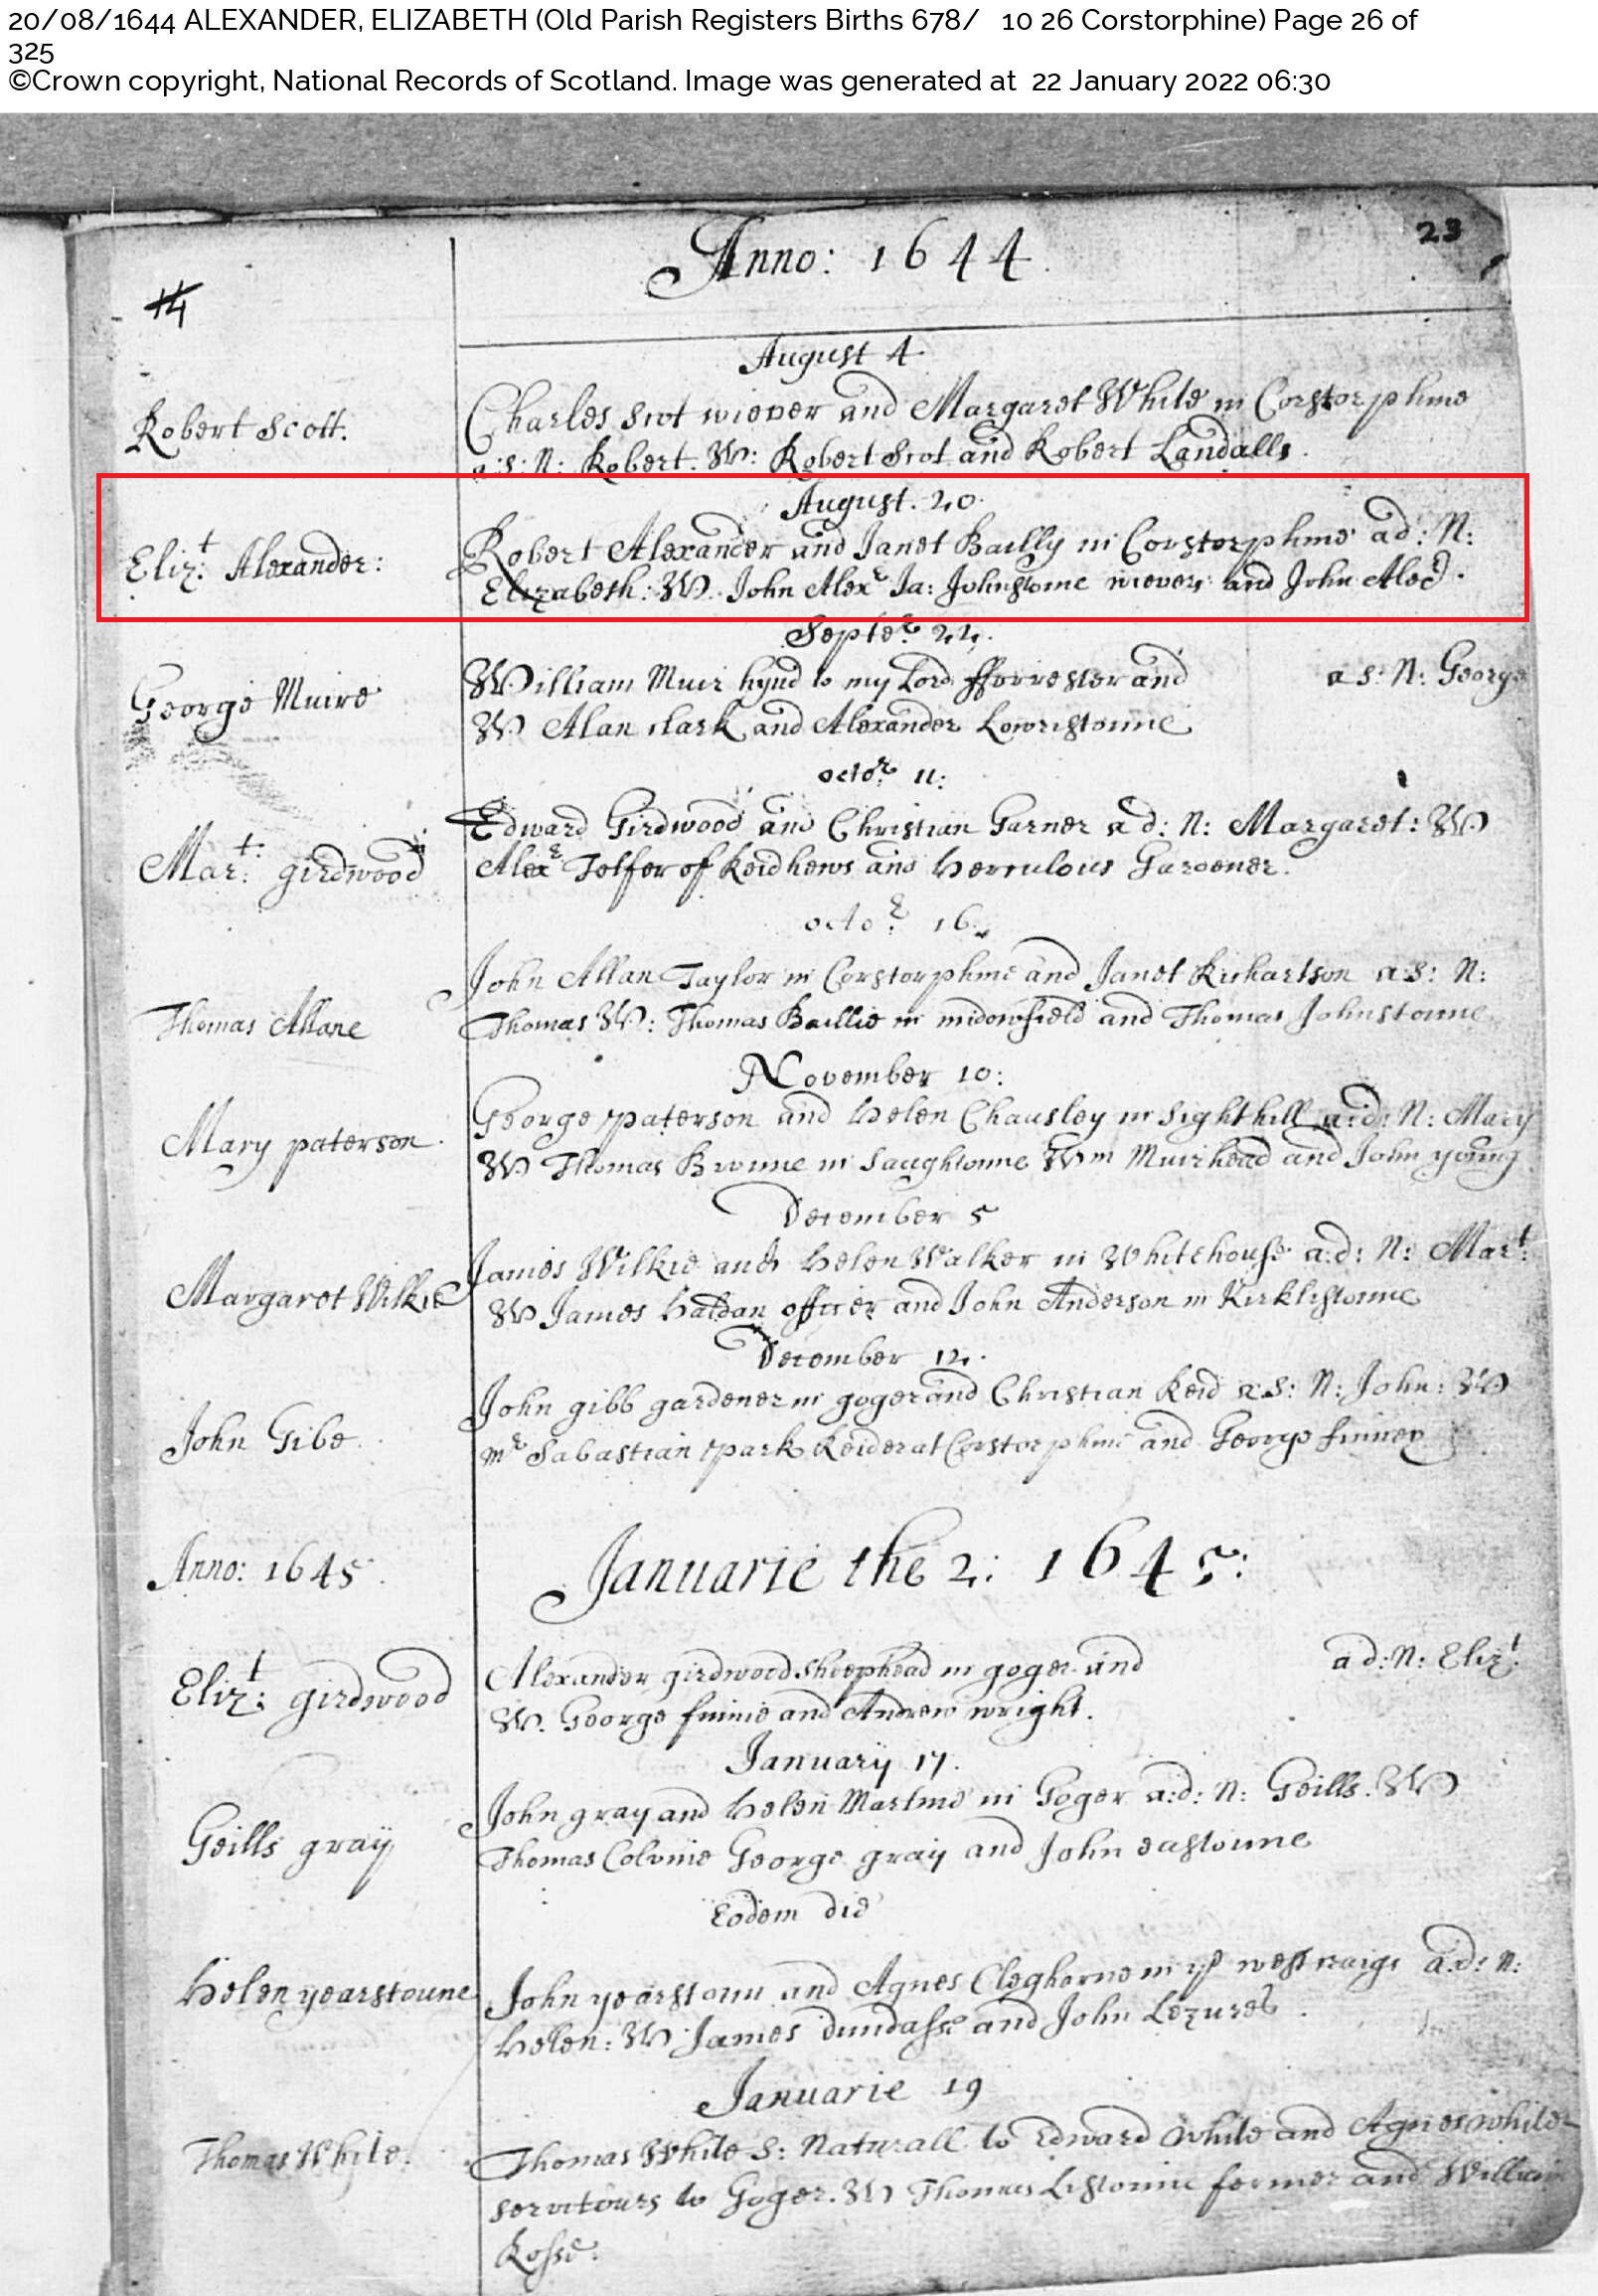 20/08/1644 ALEXANDER, ELIZABETH (Old Parish Registers Births 678/ 10 26 Corstorphine) Page 26 of
325
©Crown copyright, National Records of Scotland. Image was generated at 22 January 2022 06:30
23
Anno: 1644
14
August 4
Robert Scott.
Charles Scot wiever and Margaret White in Corstorphine
a:s: N: Robert. W: Robert Scot and Robert Landalls.
August. 20.
Eliz:t Alexander:
Robert Alexander and Janet Bailly in Corstorphine ad: N:
Elizabeth: W. John Alexr Ja: Johnstoune wiever and John Alexr.
Septer 22.
George Muire
William Muir hynd to my Lord fforrester and a s: N: George
W Alan Clark and Alexander Lowristoune
octor 11:
Mar:t girdwood
Edward Girdwood and Christian Garner a d: N: Margaret: W
Alexr Telfer of Reidhews and Herculous Gardener.
octor 16.
Thomas Allane
John Allan Taylor in Corstorphine and Janet Richartson a s: N:
Thomas W: Thomas Baillie in midowfield and Thomas Johnstoune
November 10:
Mary paterson.
George paterson and Helen Chausley in Sighthill a:d: N: Mary
W Thomas Broune in Saughtoune Wm Muirhead and John young
December 5
Margaret Wilkie
James Wilkie and Helen Walker in Whitehouse a:d: N: Mart:
W James Haldan officer and John Anderson in Kirklistoune
December 12.
John Gibe
John gibb gardener in goger and Christian Reid a s: N: John: W
mr Sabastian park Reider at Corstorphine and George finney
Anno: 1645
Januarie the 2: 1645:
Eliz:t girdwood
Alexander girdwood sheephead in goger and a d: N: Eliz:t
W. George finnie and Andrew wright.
January 17.
Geills gray
John gray and Helen Martine in Goger a:d: N: Geills. W
Thomas Colvine George gray and John eastoune
Eodem die
Helen yearstoune
John yearstoun and Agnes Cleghorne in ye west craigs a:d: N:
Helen: W James dundasse and John Lezures.
Januarie 19
Thomas White.
Thomas White S: Naturall to Edward White and Agnes white
servitours to Goger. W Thomas Listoune fermer and William
Rosse.